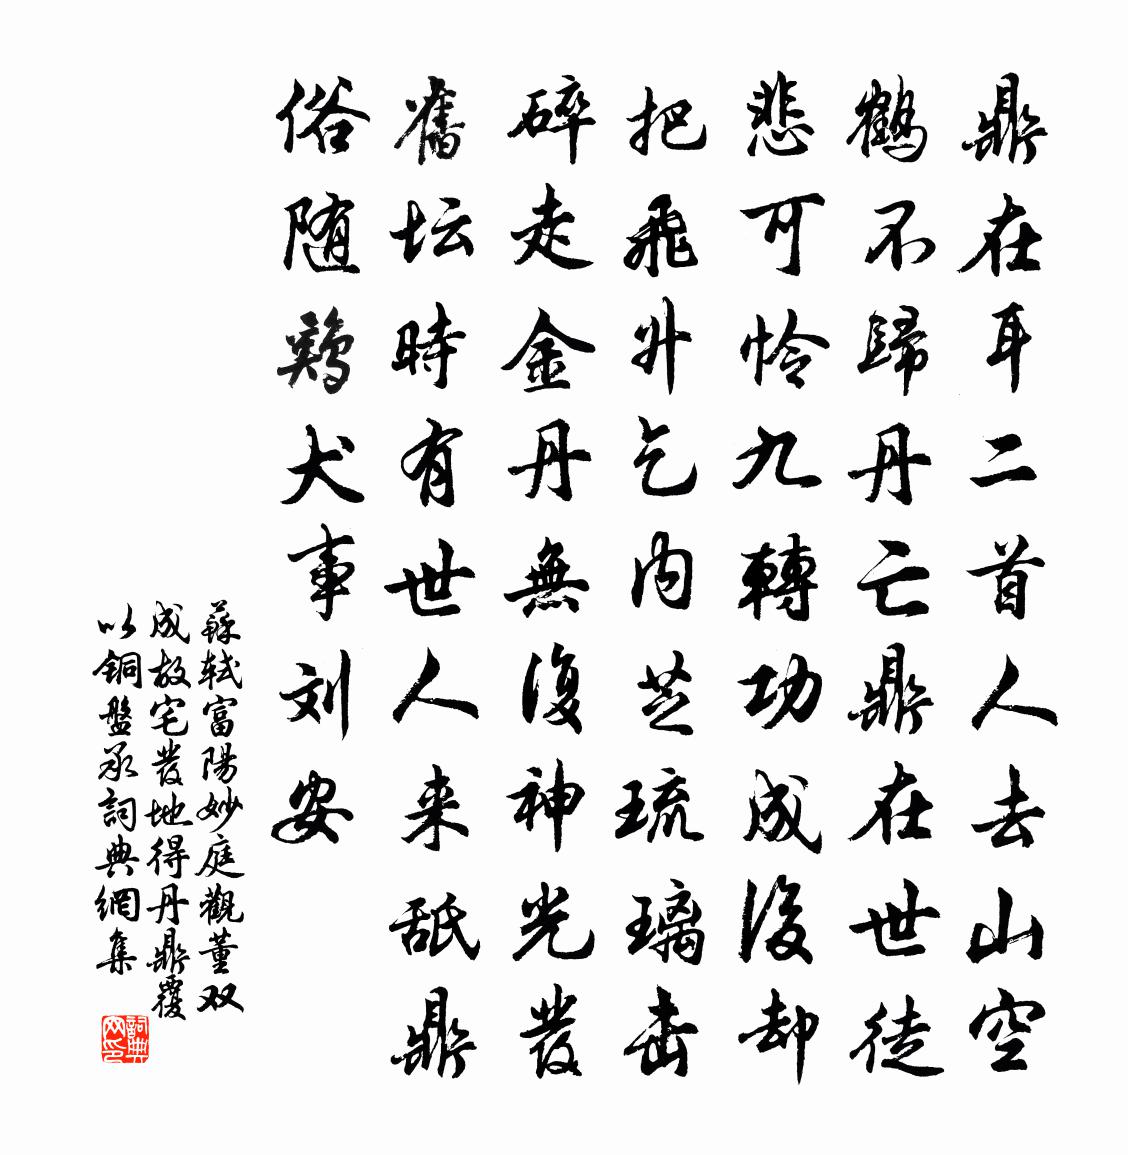 鼎在耳二首人去山空
鶴不歸丹亡鼎在世徒
悲可怜九轉功成後却
把飛升乞内芝琉璃击
碎走金丹無復神光發
舊坛時有世人来舐鼎
俗随鷄犬事刘安
蘇轼富陽妙庭觀董双
成故宅發地得丹鼎覆
以銅盤承詞典網集
詞典网印